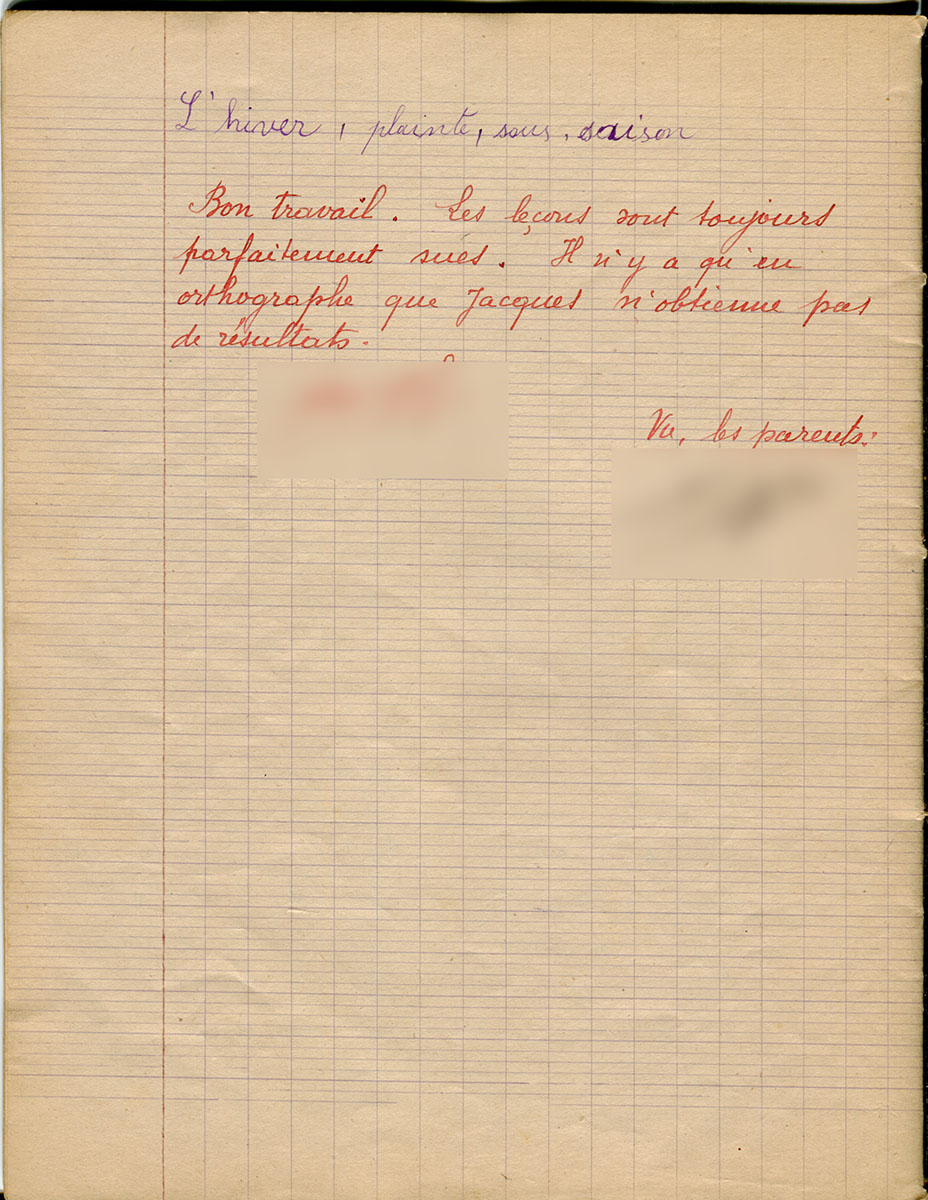 L'hiver, plainte, sous, saison
Bon travail. Les leçons sont toujours
parfaitement sues. Il n'y a qu'en
orthographe que Jacques n'obtienne pas
de résultats.
Vu, les parents: